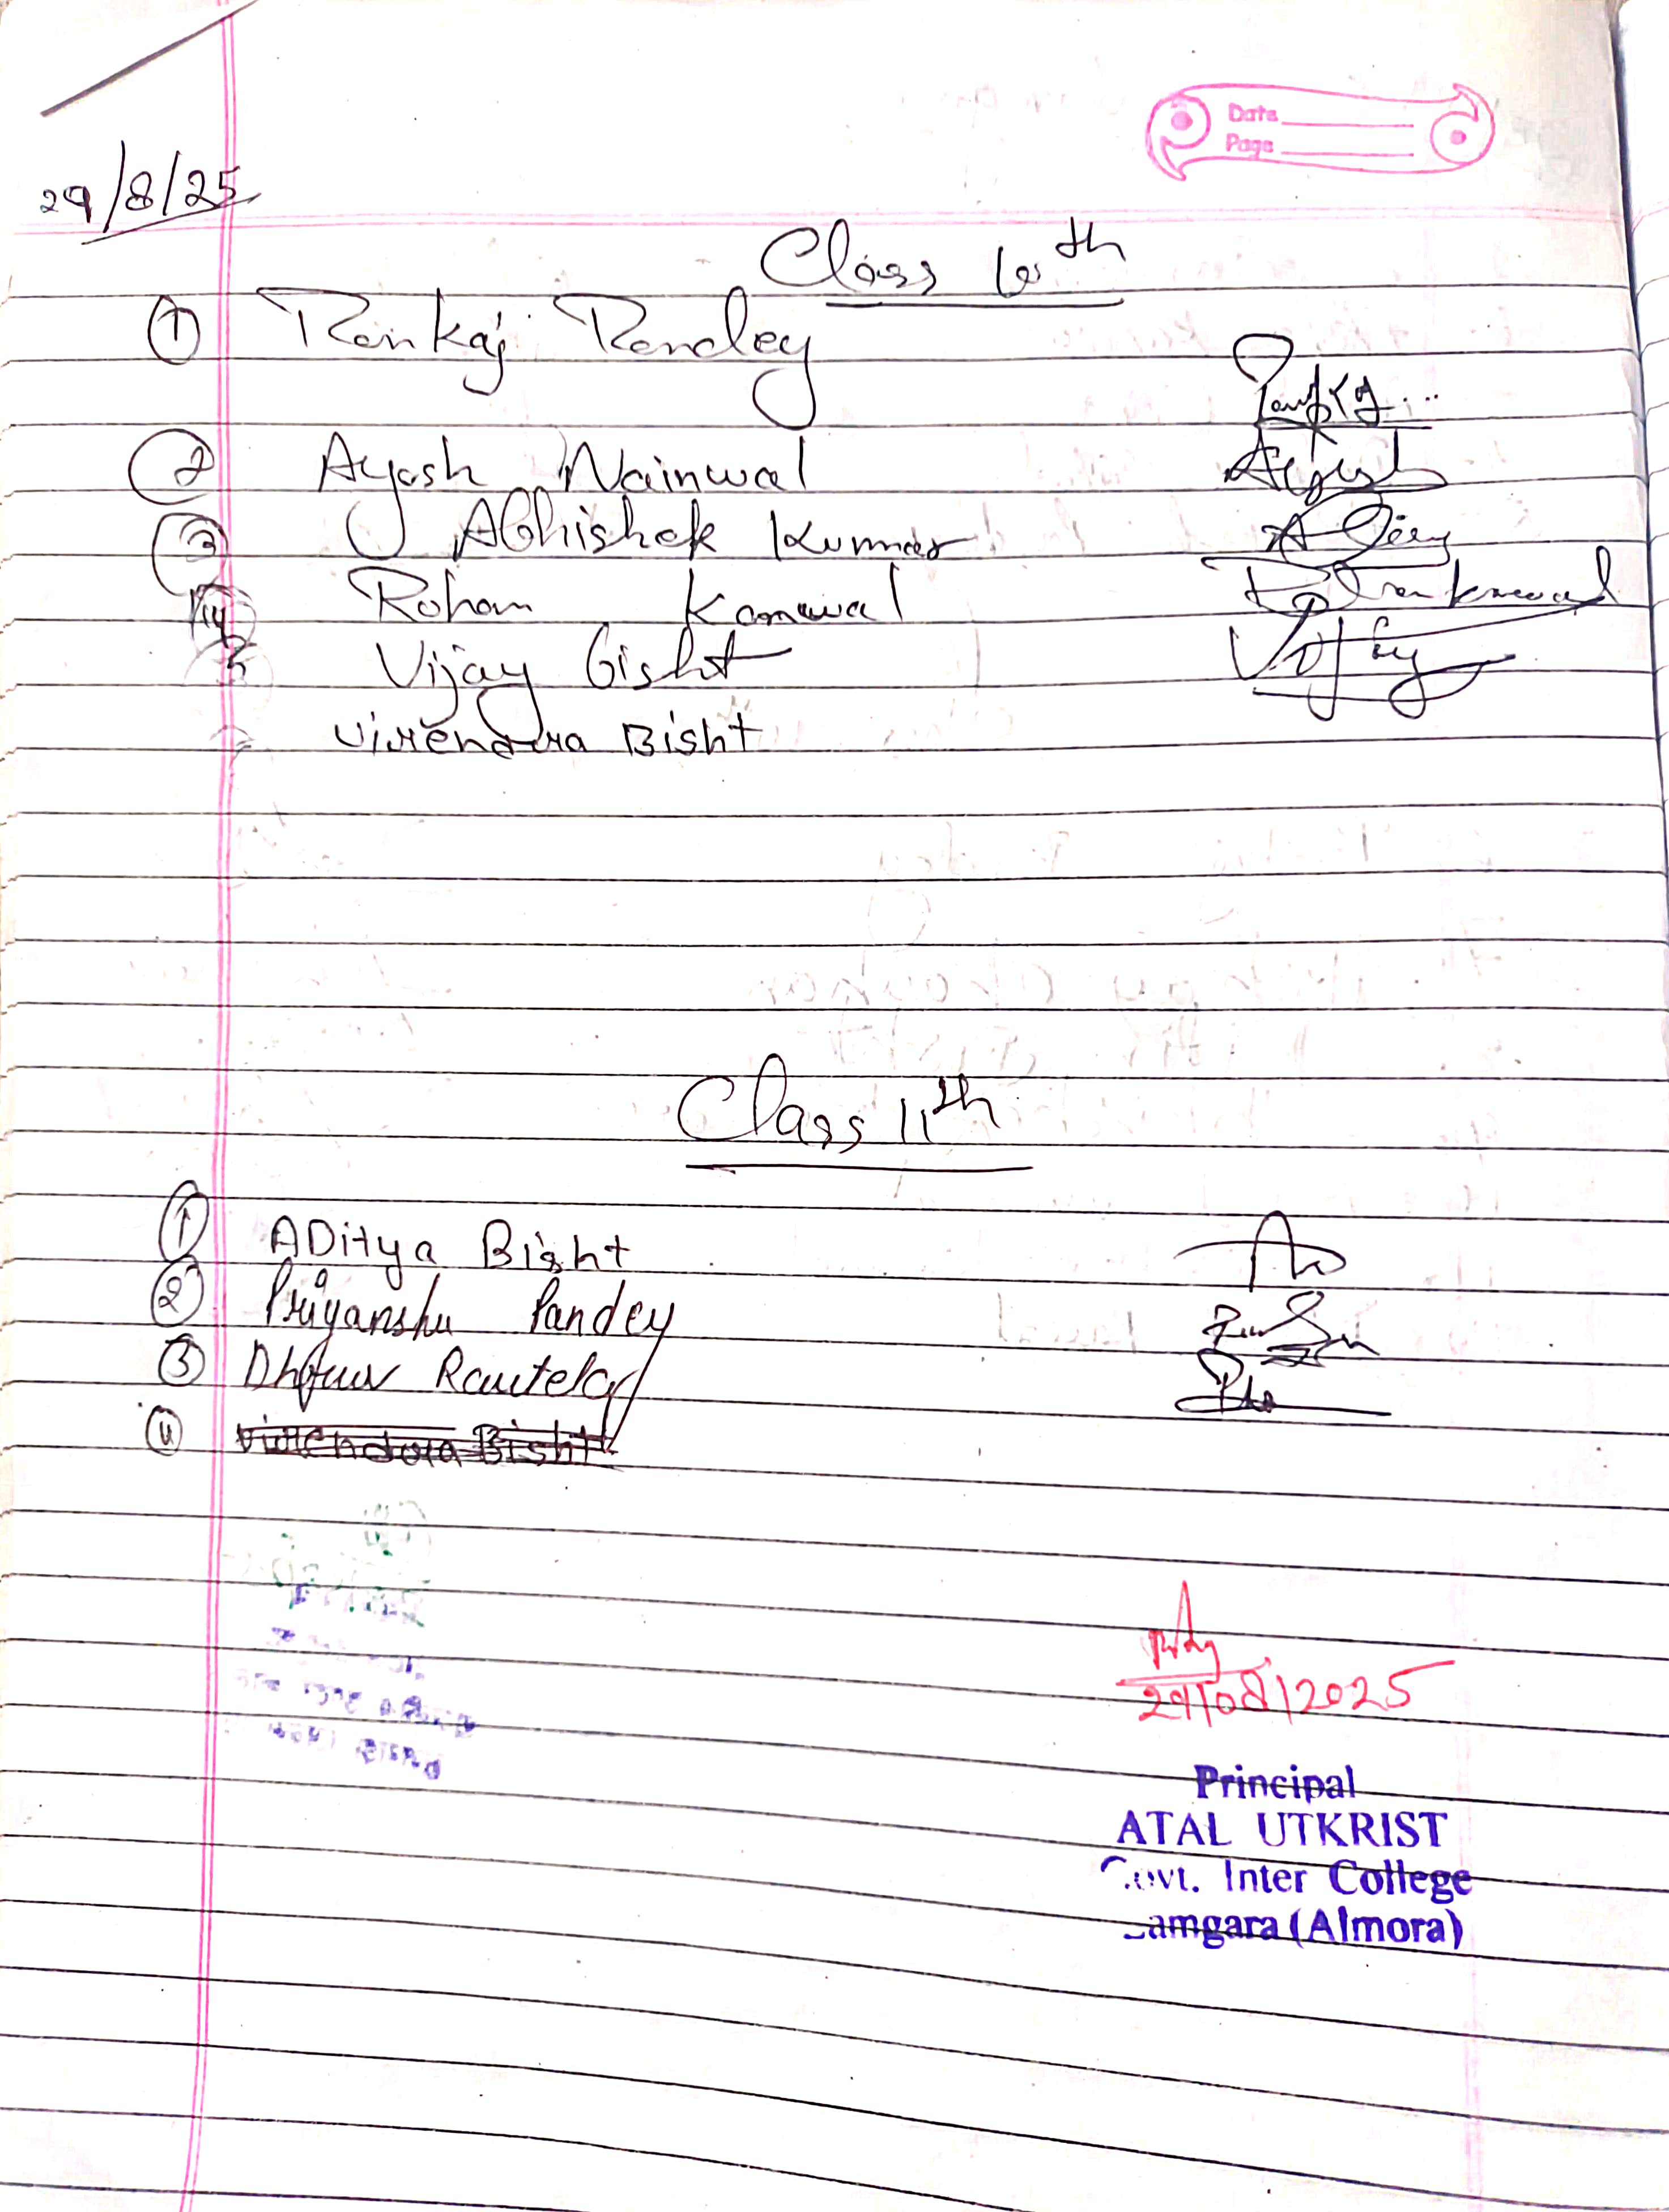 Date
Page
29/8/25
Class 10th
1 Pankaj Pandey Pankaj...
2 Ayush Nainwal Ayush
3 Abhishek Kumar
4 Rohan Kanwal Rohan Kanwal
5 Vijay Bisht Vijay
Virendra Bisht
Class 11th
1 ADitya Bisht
2 Priyanshu Pandey
3 Dhruv Rautela
4 Virendra Bisht
29/08/2025
Principal
ATAL UTKRIST
Govt. Inter College
Lamgara (Almora)